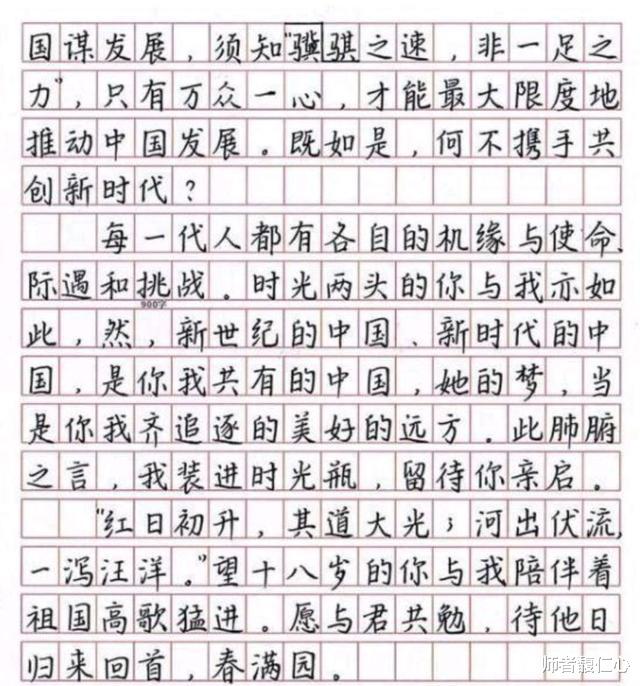 国谋发展，须知“骥骐之速，非一足之
力”，只有万众一心，才能最大限度地
推动中国发展。既如是，何不携手共
创新时代？
每一代人都有各自的机缘与使命、
际遇和挑战。时光两头的你与我亦如
900字
此，然，新世纪的中国、新时代的中
国，是你我共有的中国，她的梦，当
是你我齐追逐的美好的远方。此肺腑
之言，我装进时光瓶，留待你亲启。
“红日初升，其道大光；河出伏流，
一泻汪洋。”望十八岁的你与我陪伴着
祖国高歌猛进。愿与君共勉，待他日
归来回首，春满园。
师者馥仁心